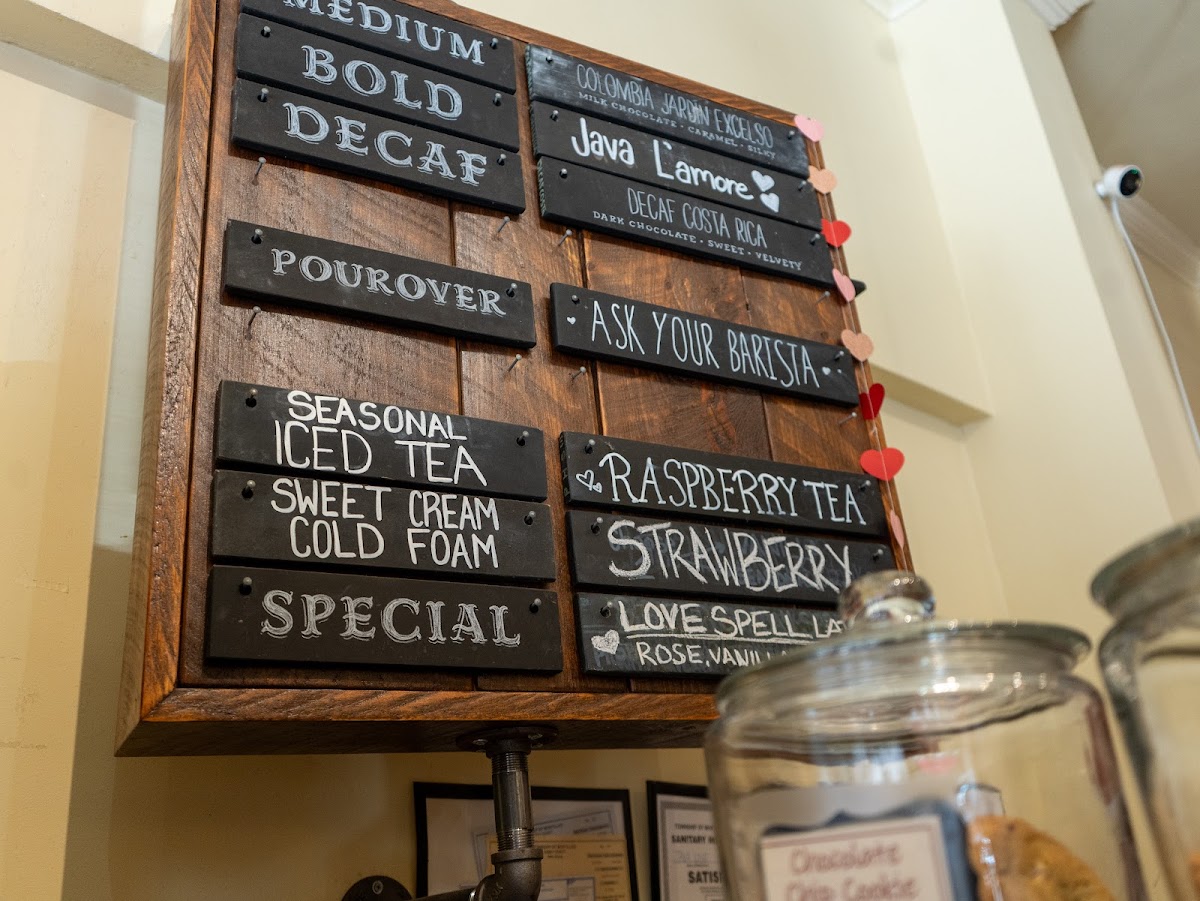 MEDIUM
COLOMBIA JARDÍN EXCELSO
MILK CHOCOLATE • CARAMEL • SILKY
BOLD
Java L'amore
DECAF
DECAF COSTA RICA
DARK CHOCOLATE • SWEET • VELVETY
POUROVER
ASK YOUR BARISTA
SEASONAL
ICED TEA
RASPBERRY TEA
SWEET CREAM
COLD FOAM
STRAWBERRY
SPECIAL
LOVE SPELL
ROSE, VANIL
SANITARY
SATIS
Chocolate
Chip Cookie